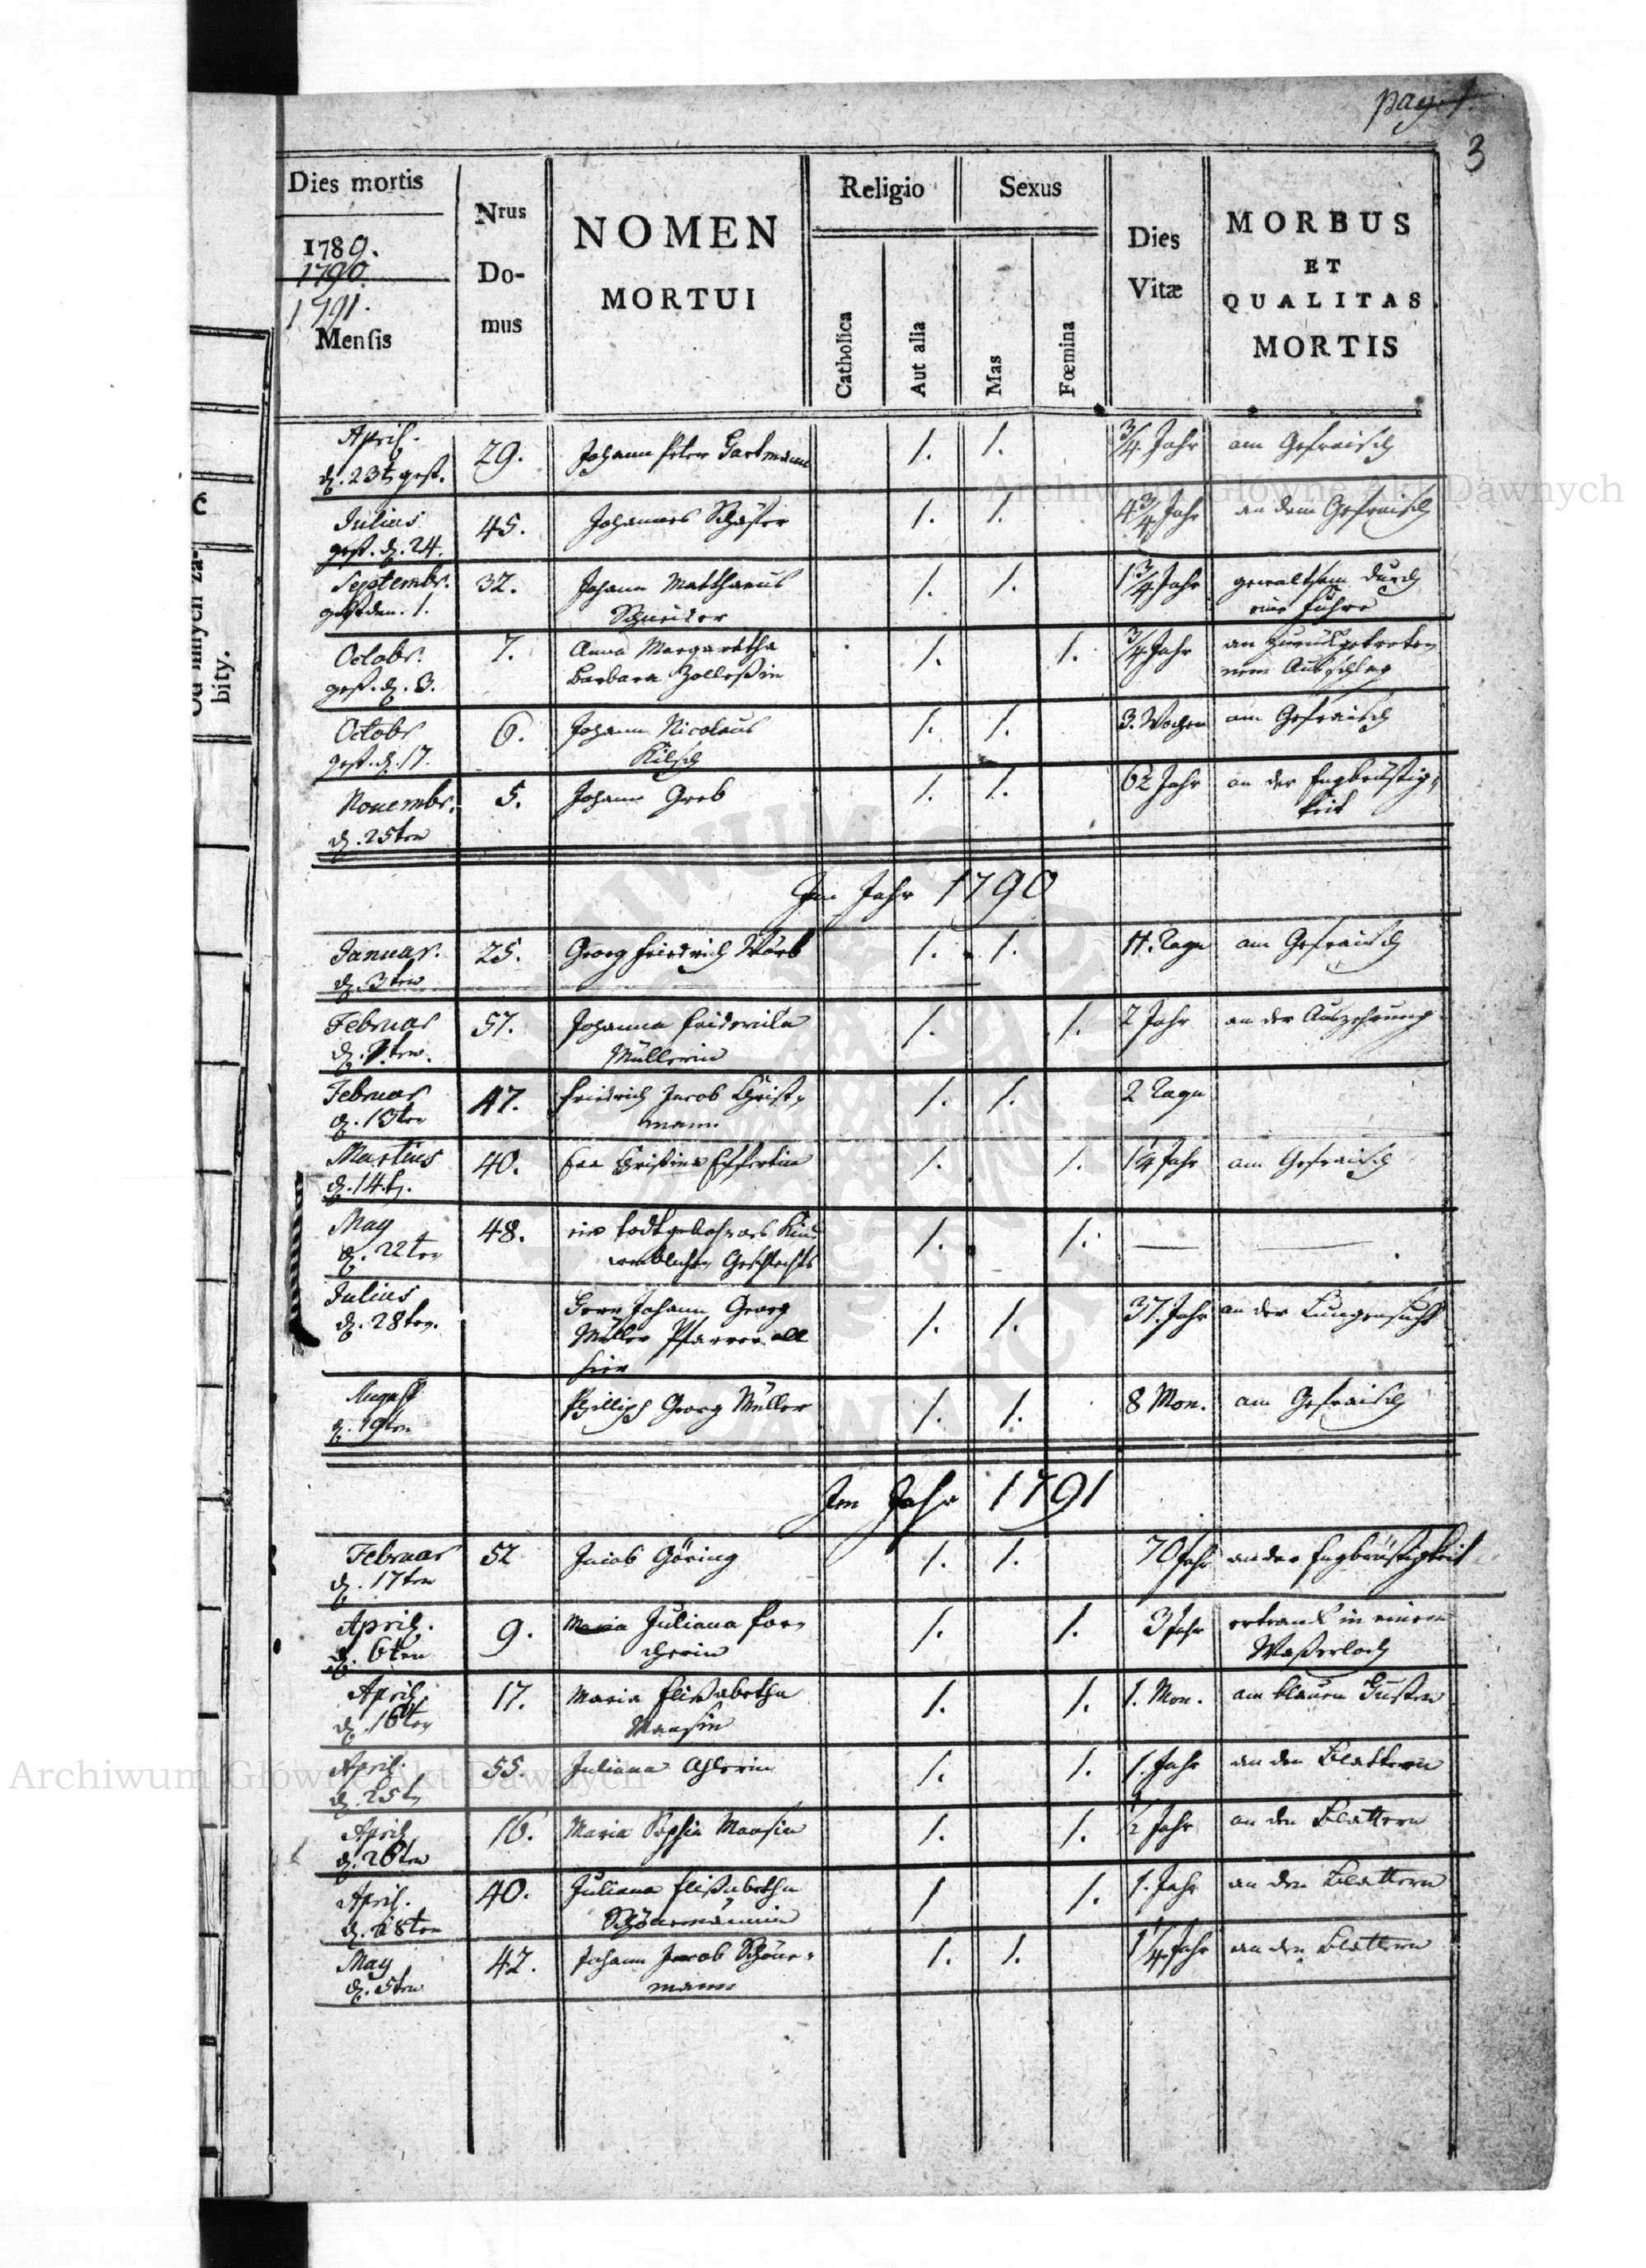 pag. 1.
3
Dies mortis
1789.
1790.
1791.
Mensis
Nrus
Do-
mus
NOMEN
MORTUI
Religio
Catholica
Aut alia
Sexus
Mas
Fœmina
Dies
Vitæ
MORBUS
ET
QUALITAS
MORTIS
April. 29. Johann Peter Hartmann 1. 1. 3/4 Jahr am Gefraisch
d. 23t gest.
Julius 45. Johannes Schäfer 1. 1. 4 3/4 Jahr an dem Gefraisch
gest. d. 24.
Septembr. 32. Johann Matthaeus 1. 1. 1 3/4 Jahr gewaltsam durch
gest. den. 1. Schneider eine Fuhre
Octobr. 7. Anna Margaretha 1. 1. 3/4 Jahr an zurückgetrete-
gest. d. 8. Barbara nem Ausschlag
Octobr 6. Johann Nicolaus 1. 1. 3. Wochen am Gefraisch
gest. d. 17.
Novembr. 5. Johann Greb 1. 1. 62 Jahr an der Engbrüstig-
d. 25ten keit
Im Jahr 1790
Januar. 25. Georg Friedrich 1. 1. 11. Tage am Gefraisch
d. 3ten
Februar 57. Johanna Fridericka 1. 1. 2 Jahr an der Auszehrung
Müllerin
Februar 47. Friedrich Jacob Christ- 1. 1. 2 Tage
d. 13ten mann
Martius 40. Eva Christina 1. 1. 1 1/4 Jahr am Gefraisch
d. 14t.
May 48. ein todtgebohrnes Kind 1. 1.
d. 22ten weiblichen Geschlechts
Julius Herr Johann Georg 1. 1. 37. Jahr an der Lungensucht
d. 28ten. Müller Pfarrer all
hier
August Phillipp Georg Müller 1. 1. 8 Mon. am Gefraisch
d. 19ten
Im Jahr 1791
Februar 52 Jacob Göring 1. 1. 70 Jahr an der Engbrüstigkeit
d. 17ten
April. 9. Maria Juliana 1. 1. 3 Jahr ertrank in einem
d. 6ten Waßerloch
April 17. Maria Elisabetha 1. 1. 1. Mon. am blauen Husten
d. 16ten
April. 55. Juliana 1. 1. 1. Jahr an den Blattern
d. 25t
April 16. Maria Sophia 1. 1. 1/2 Jahr an den Blattern
d. 26ten
April. 40. Juliana Elisabetha 1 1. 1. Jahr an den Blattern
d. 28ten Schönemännin
May 42. Johann Jacob Schöne- 1. 1. 1 1/4 Jahr an den Blattern
d. 5ten mann
bity.
Archiwum Główne Akt Dawnych
Archiwum Główne Akt Dawnych